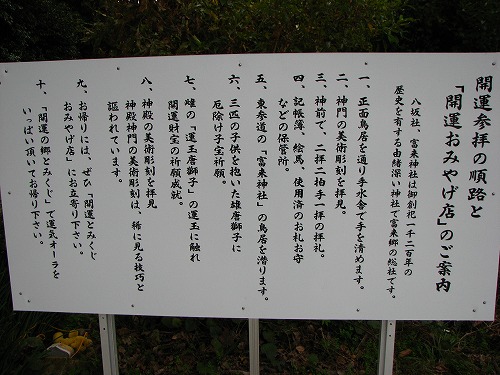 開運参拝の順路と
「開運おみやげ店」のご案内
八坂社、富来神社は御創祀一千二百年の
歴史を有する由緒深い神社で富来郷の総社です。
一、正面鳥居を通り手水舎で手を清めます。
二、神門の美術彫刻を拝見。
三、神前で、二拝二拍手一拝の拝礼。
四、記帳簿、絵馬、使用済のお札お守
などの保管所。
五、東参道の「富来神社」の鳥居を潜ります。
六、三匹の子供を抱いた雄唐獅子に
厄除け子宝祈願。
七、雄の「運玉唐獅子」の運玉に触れ
開運財宝の祈願成就。
八、神殿の美術彫刻を拝見
神殿神門の美術彫刻は、稀に見る技巧と
謳われています。
九、お帰りには、ぜひ「開運とみくじ
おみやげ店」にお立寄り下さい。
十、「開運の郷とみくじ」で運気オーラを
いっぱい頂いてお帰り下さい。